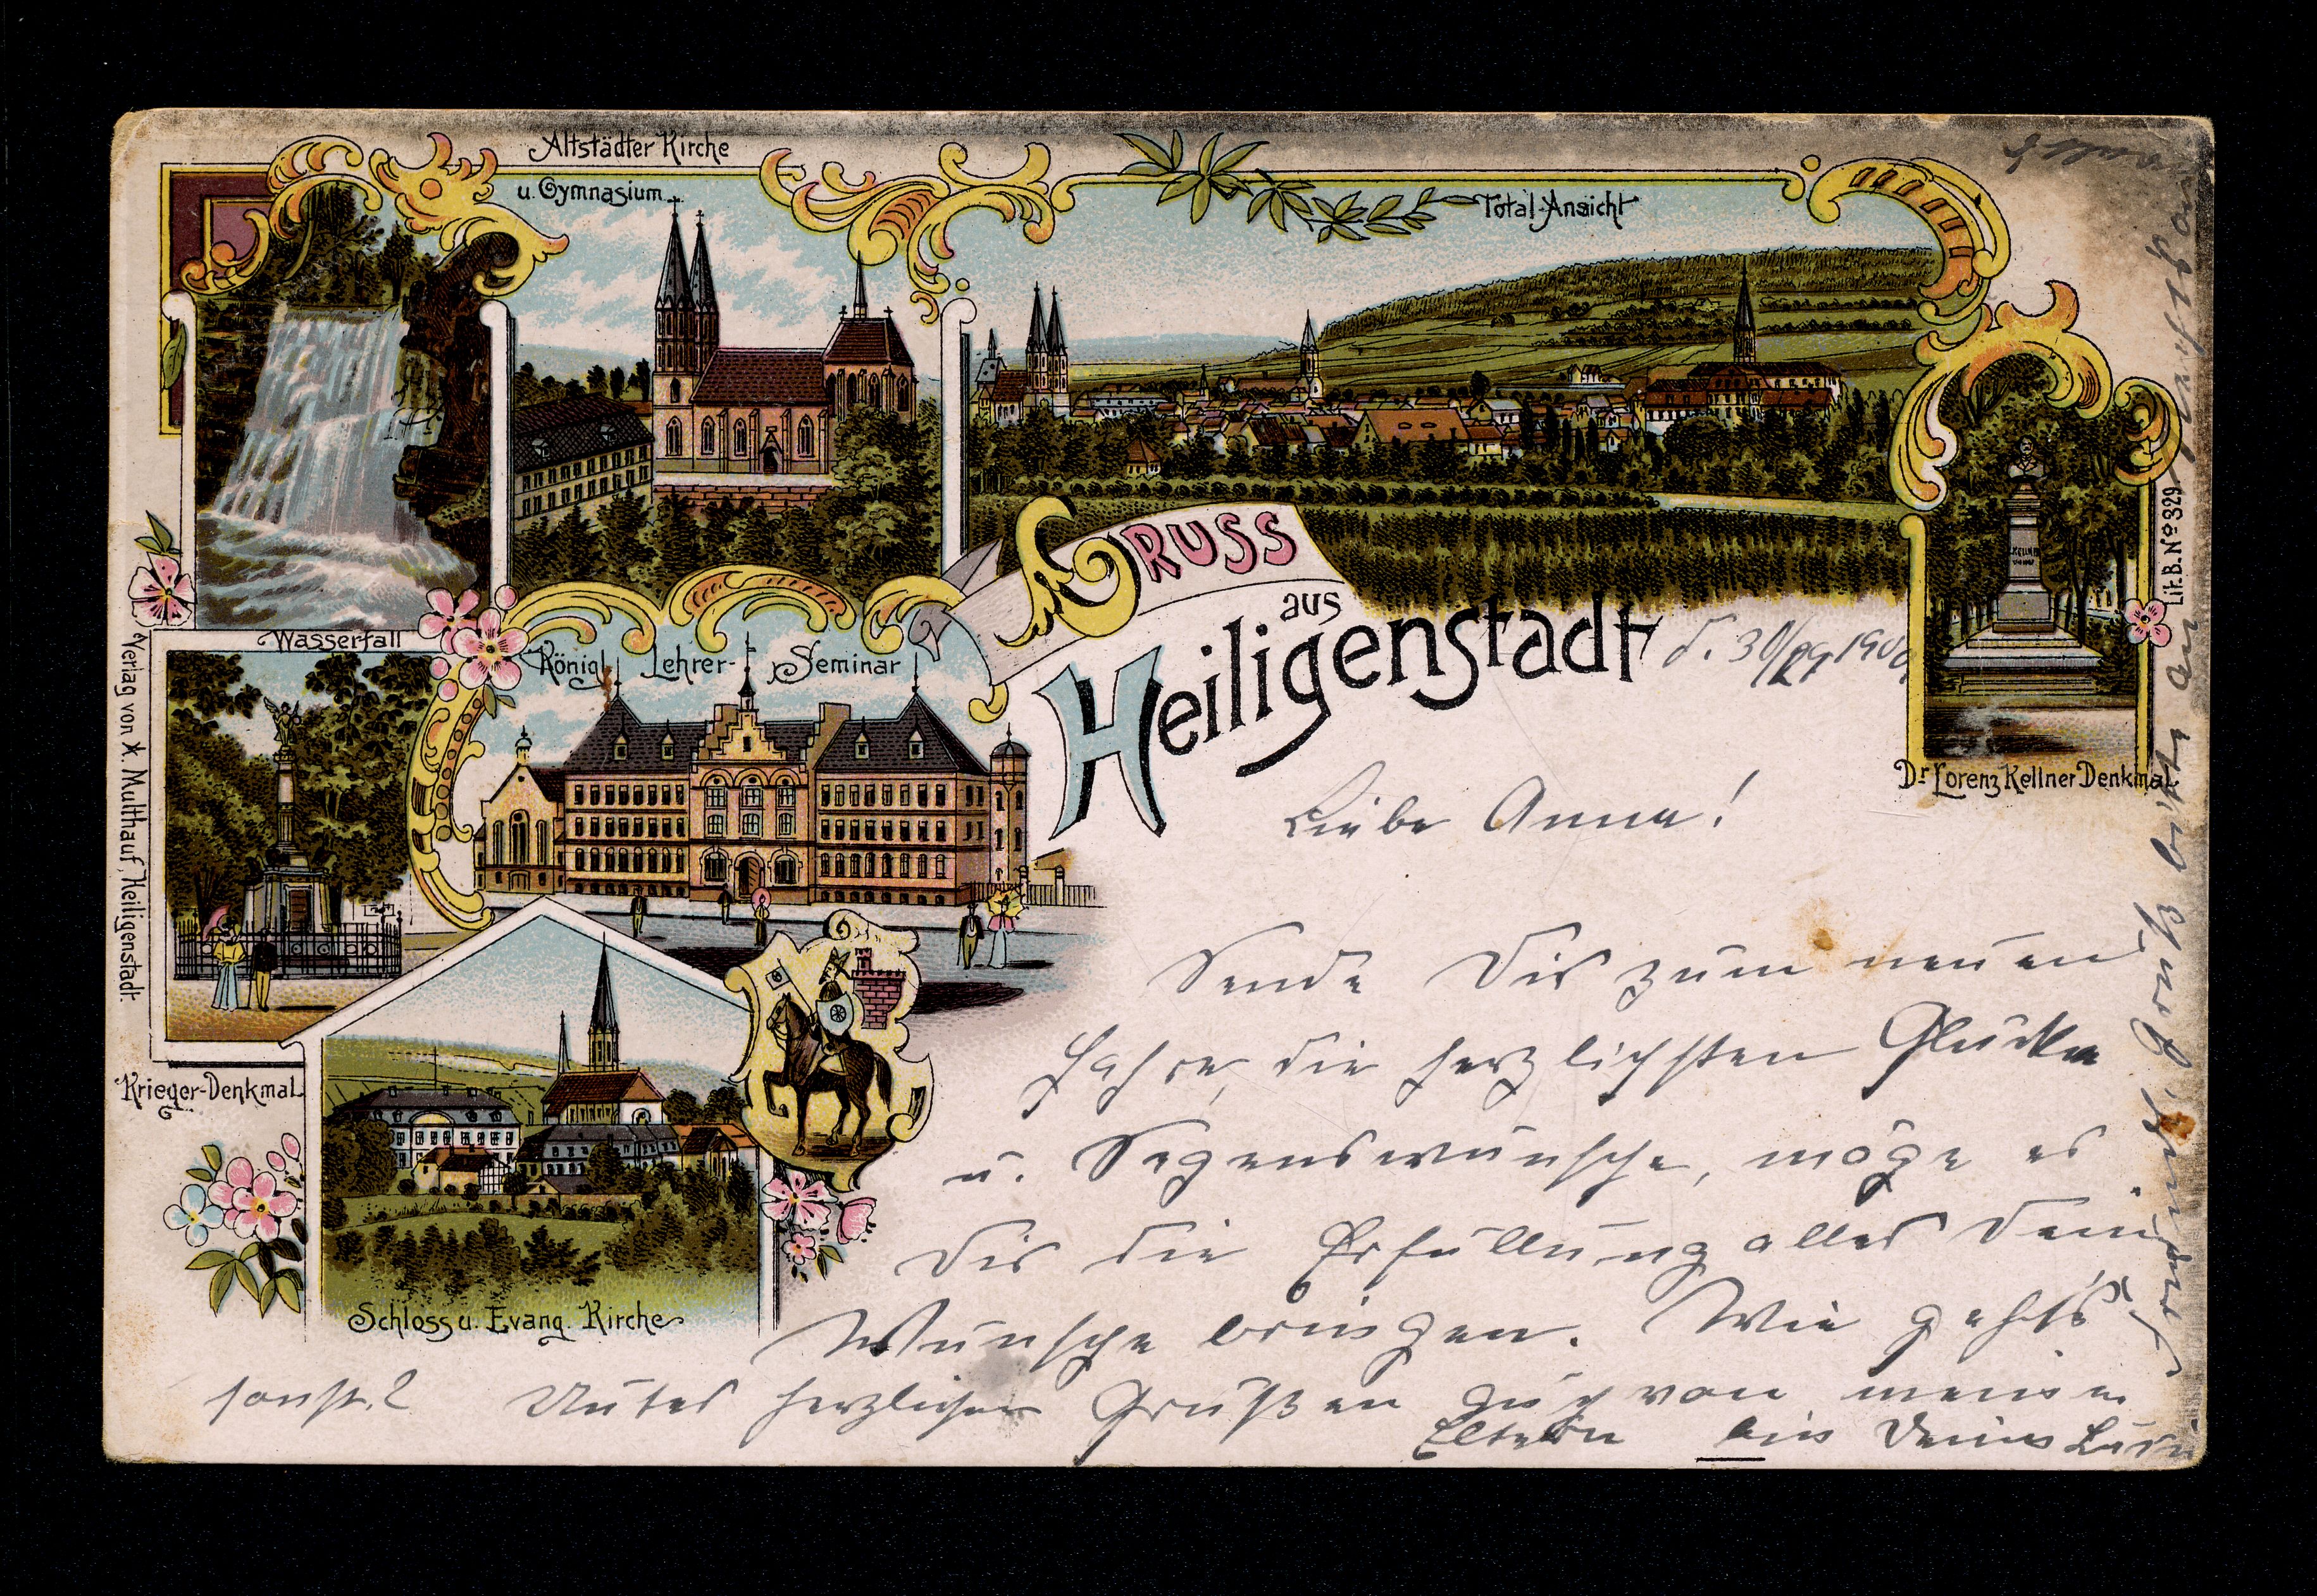 Altstädter Kirche
u. Gymnasium
Total-Ansicht
Wasserfall
Königl. Lehrer-Seminar
Gruss
aus
Heiligenstadt
Dr Lorenz Kellner Denkmal
Lit. B. No 329
Verlag von K. Multhauf, Heiligenstadt.
Krieger-Denkmal
Schloss u. Evang. Kirche
d. 30/ 190
Liebe Anna!
Sende Dir zum neuen
Jahre, die herzlichsten Glück
u. Segenswünsche, möge es
Dir die Erfüllung aller Dein
Wünsche bringen. Wie geht's
sonst? Unter herzlichen Grüßen auch von meinen
Eltern bin Deine
Grüß bitte auch